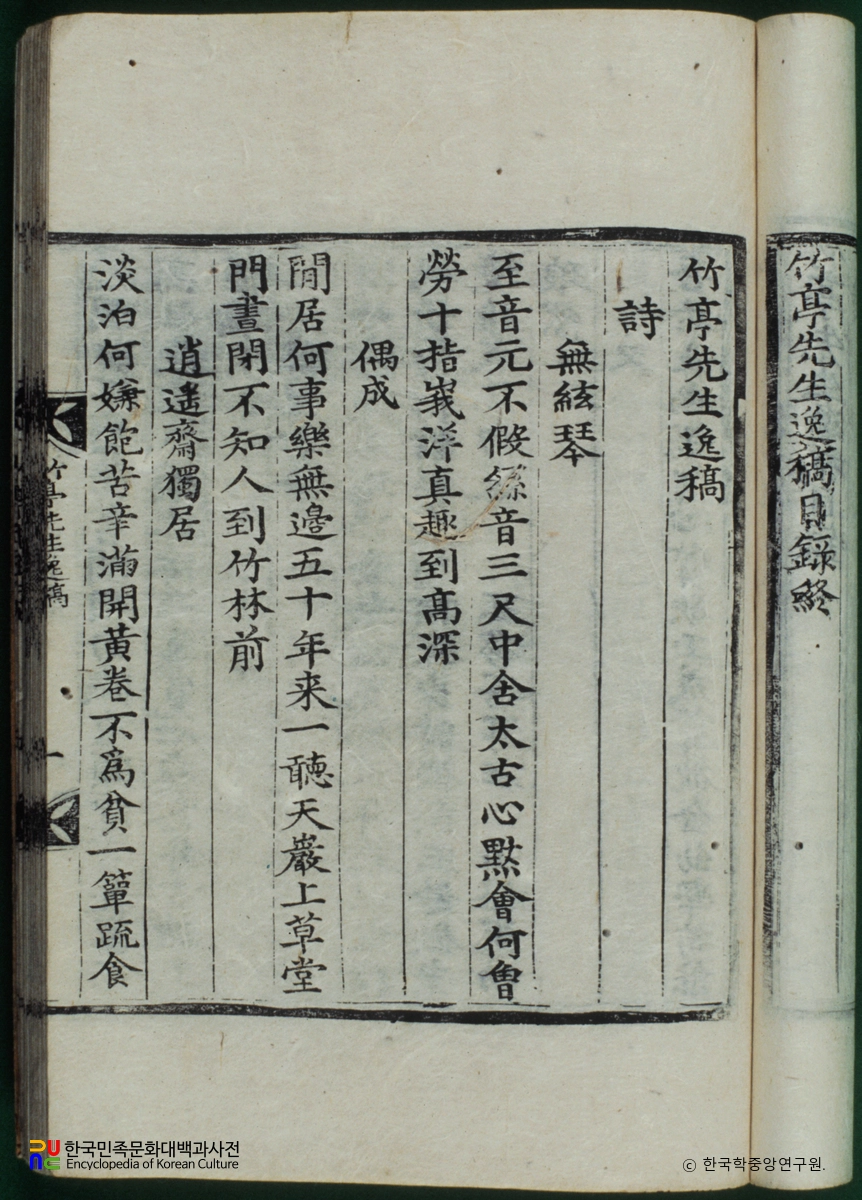 竹亭先生逸稿目錄終
竹亭先生逸稿
詩
無絃琴
至音元不假絲音三尺中含太古心黙會何曾
勞十指峩洋真趣到髙深
偶成
閒居何事樂無邊五十年来一聽天巖上草堂
門晝閉不知人到竹林前
逍遙齋獨居
淡泊何嫌飽苦辛滿開黃卷不爲貧一簞疏食
竹亭先生逸稿
一
한국민족문화대백과사전
Encyclopedia of Korean Culture
ⓒ 한국학중앙연구원.